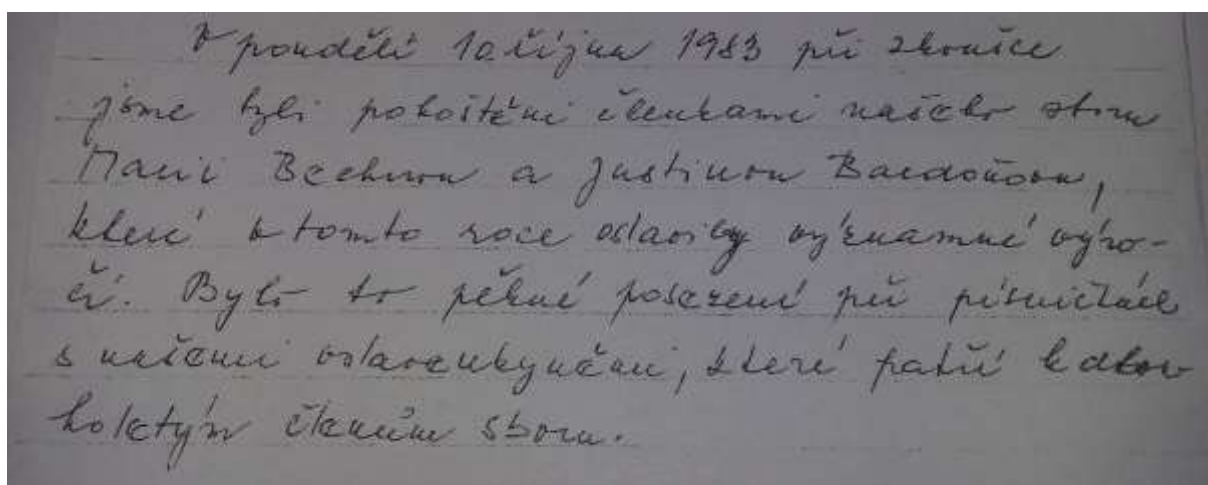 V pondělí 10. října 1983 při zkoušce
jsme byli pohoštěni členkami našeho sboru
Marií Bechnou a Justinou Bardoňovou,
které v tomto roce oslavily významné výro-
čí. Bylo to pěkné posezení při písničkách
s našemi oslavenkyněmi, které patří k dlou
holetým členům sboru.